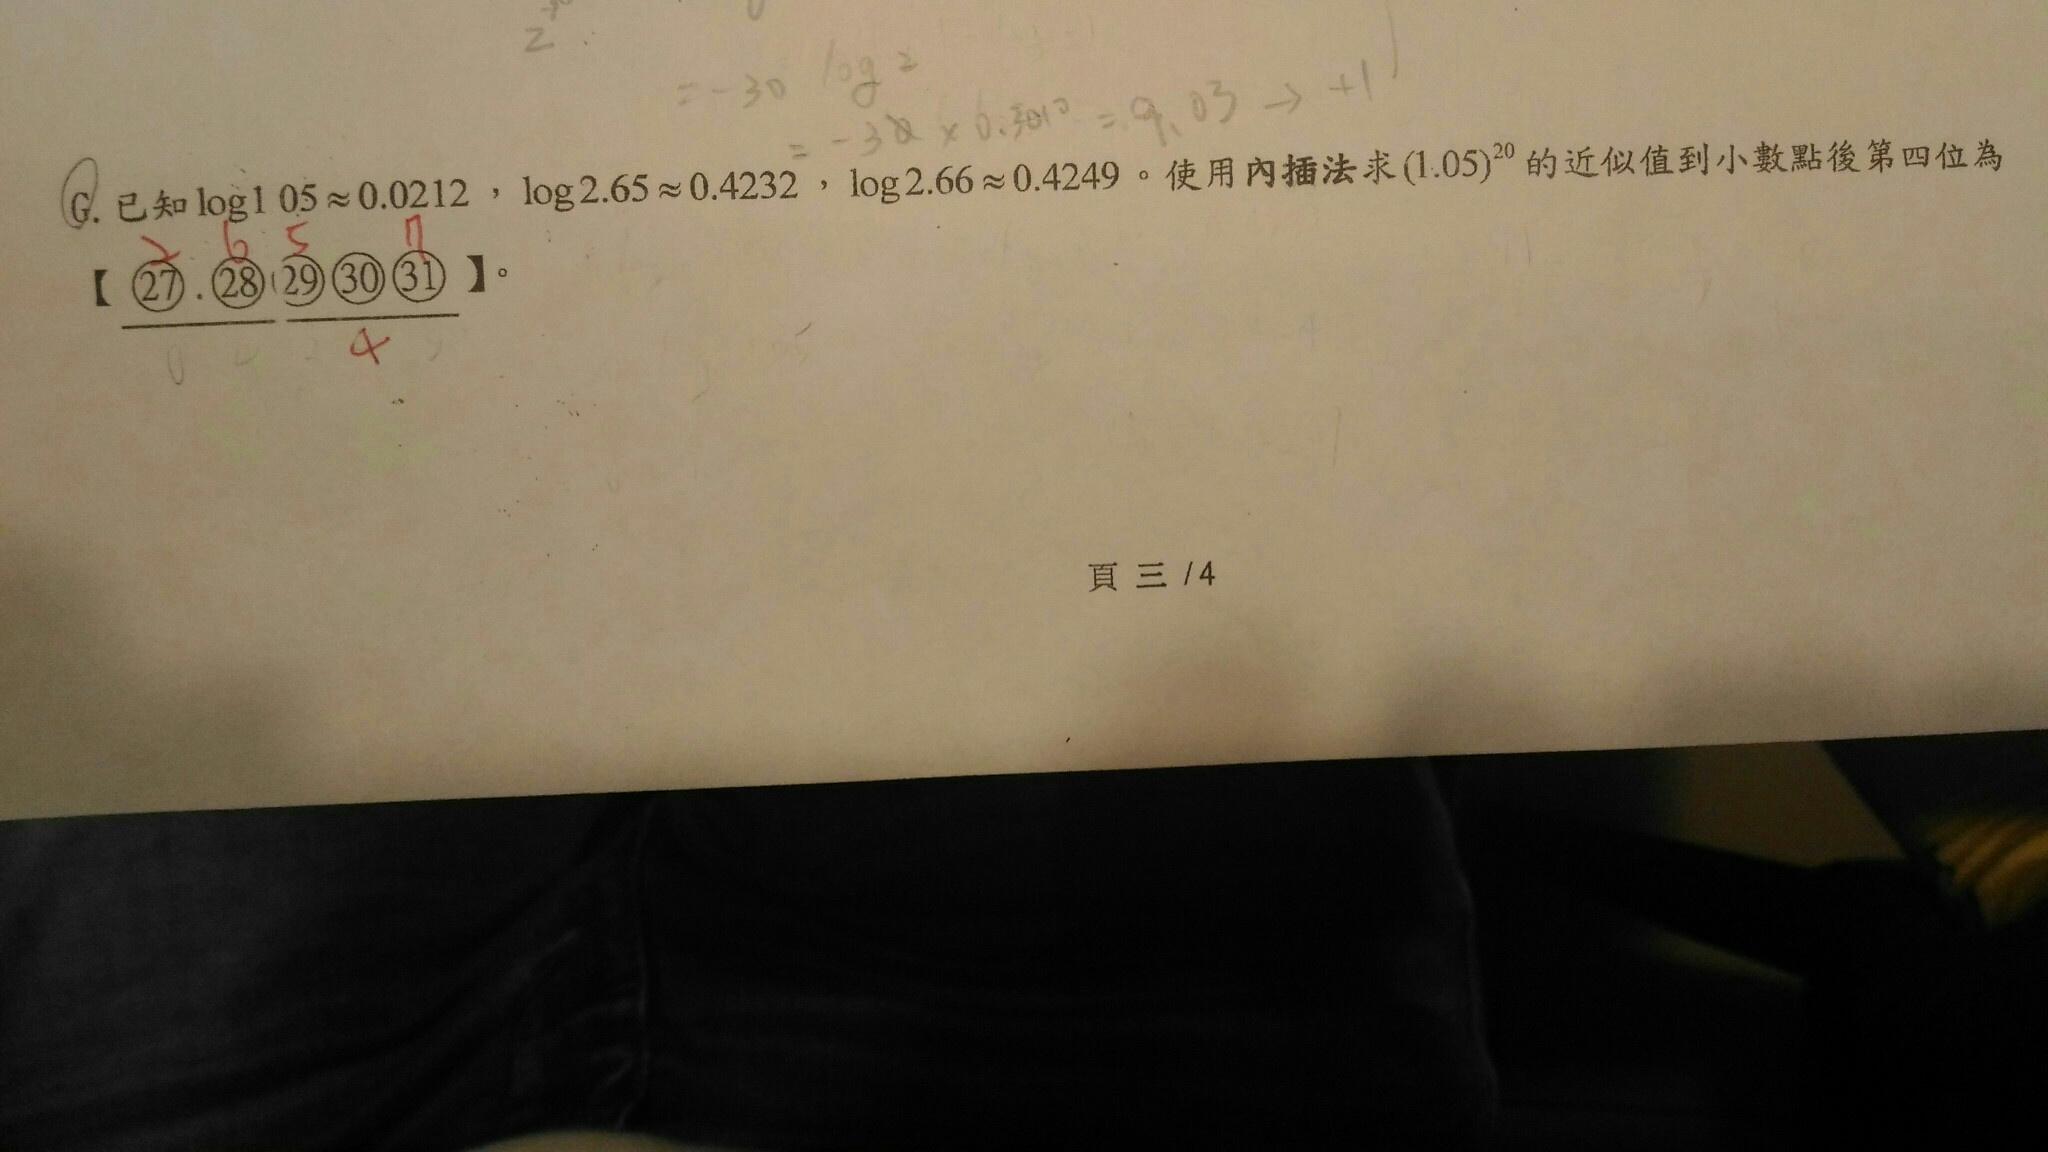 2
= -30 log 2
= -30 × 0.3010 = 9.03 → +1
G. 已知 log1 05≈0.0212，log2.65≈0.4232，log2.66≈0.4249。使用內插法求(1.05)²⁰的近似值到小數點後第四位為
2 6 5 7
【 ㉗ . ㉘ ㉙ ㉚ ㉛ 】。
4
頁 三 /4